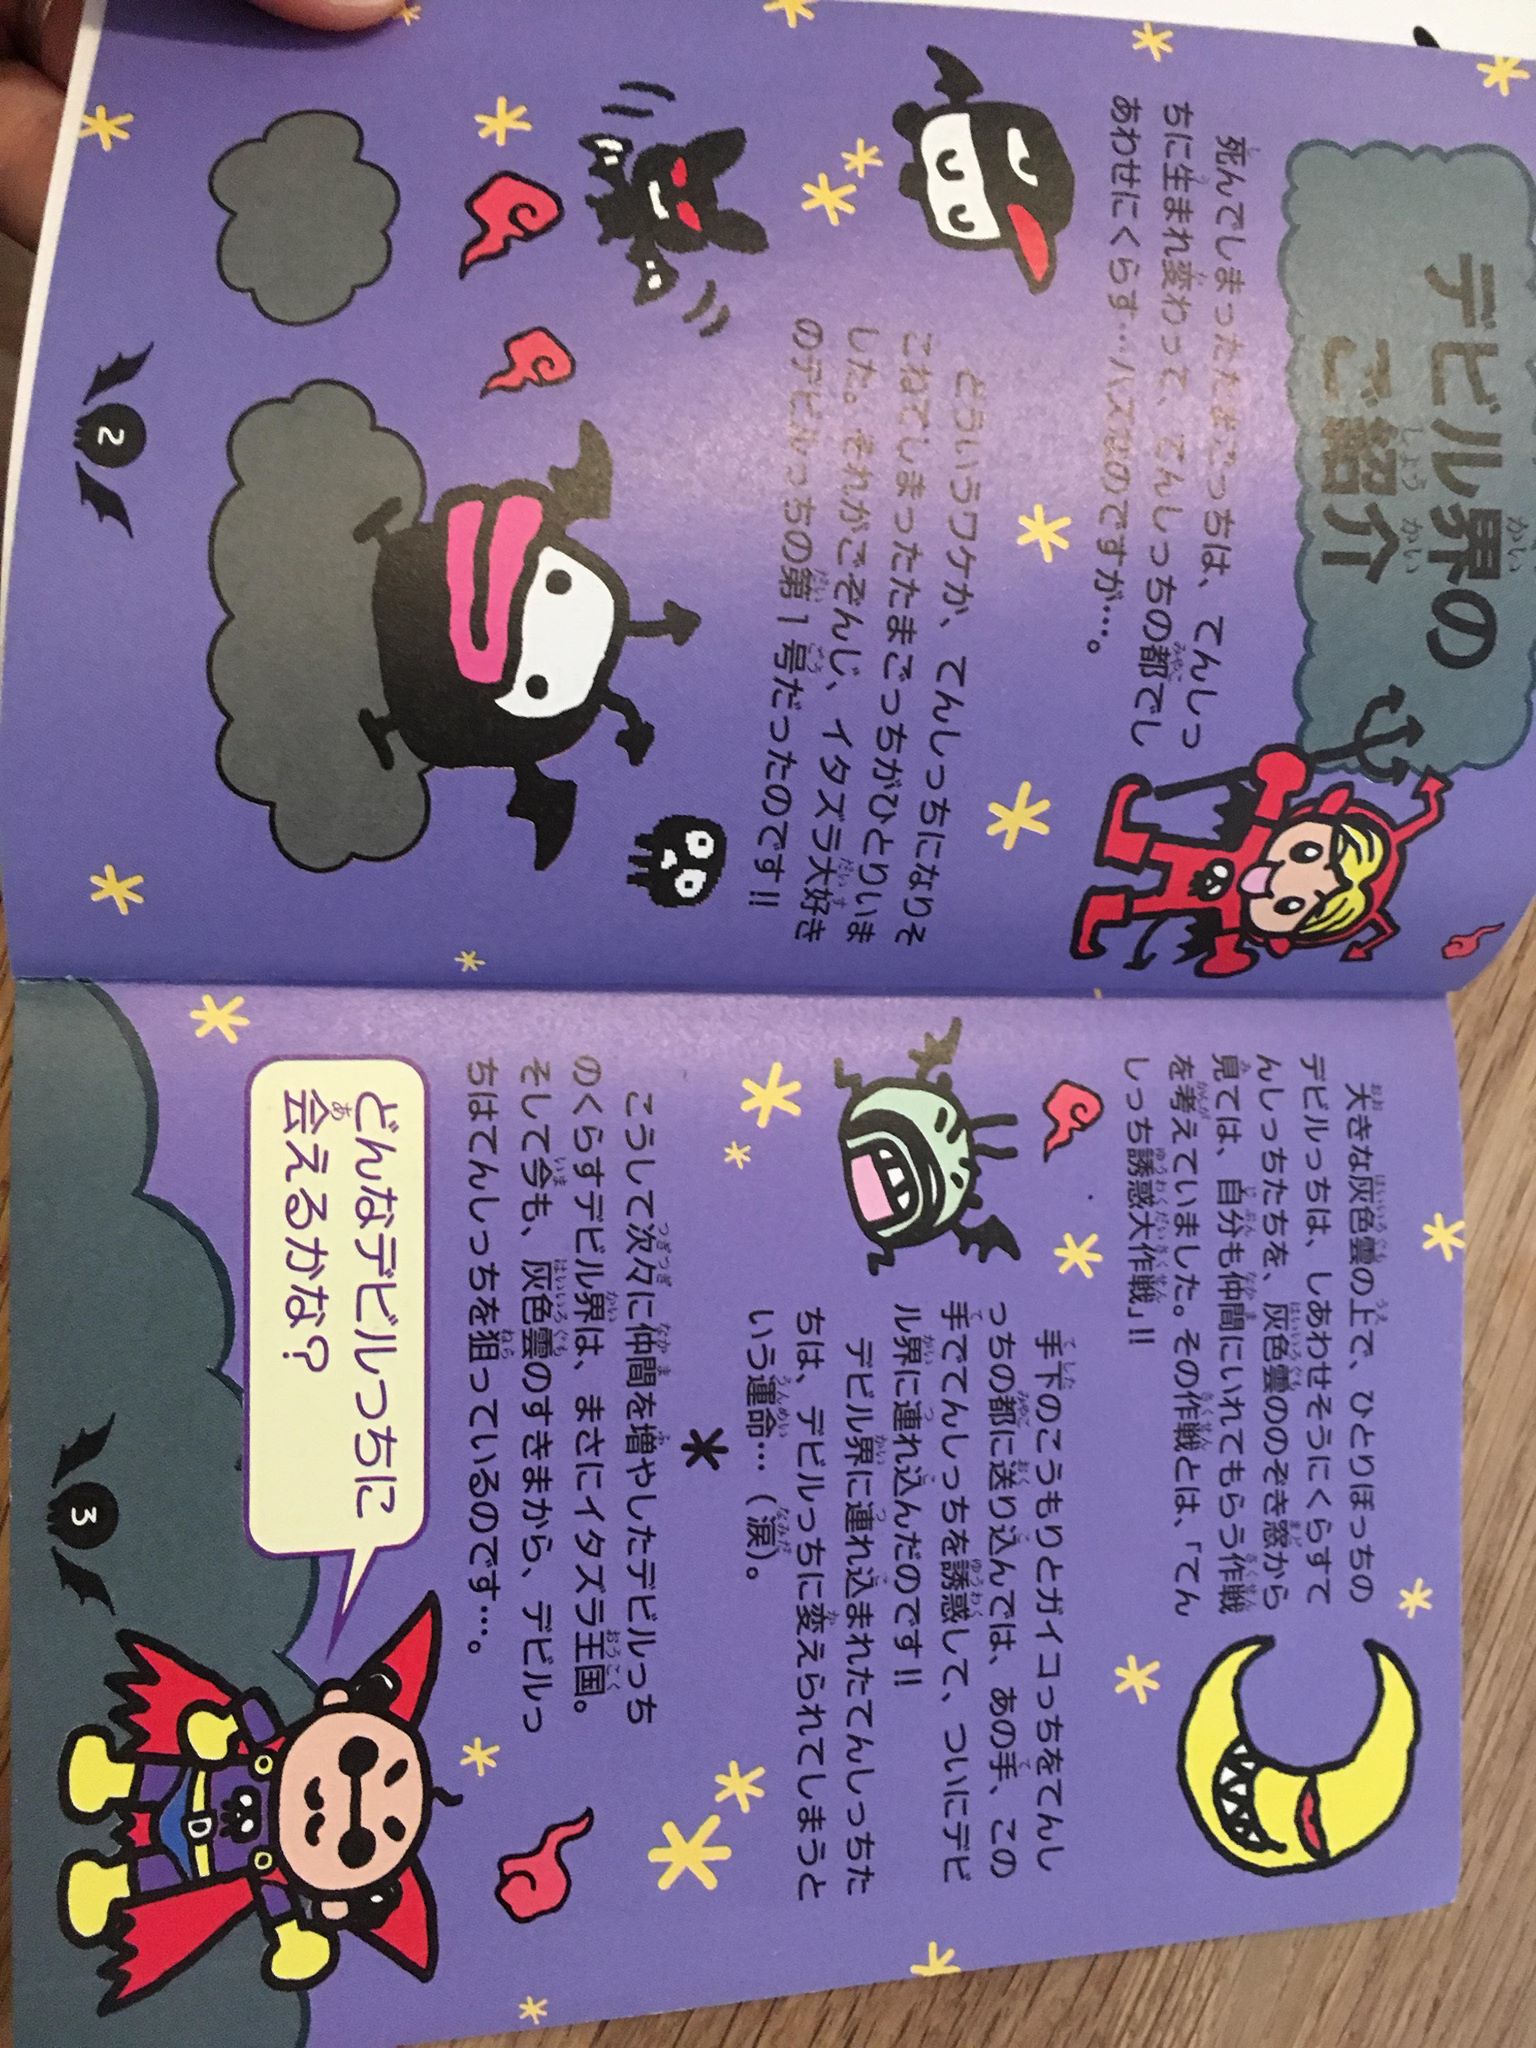 デビル界の
かい
ご紹介
しょうかい
死んでしまったたまごっちは、てんしっ
ちに生まれ変わって、てんしっちの都でし
あわせにくらす…ハズなのですが…。
どういうワケか、てんしっちになりそ
こねてしまったたまごっちがひとりいま
した。それがごぞんじ、イタズラ大好き
のデビルっちの第1号だったのです!!
2
大きな灰色雲の上で、ひとりぼっちの
デビルっちは、しあわせそうにくらすて
んしっちたちを、灰色雲ののぞき窓から
見ては、自分も仲間にいれてもらう作戦
を考えていました。その作戦とは、「てん
しっち誘惑大作戦」!!
手下のこうもりとガイコっちをてんし
っちの都に送り込んでは、あの手、この
手でてんしっちを誘惑して、ついにデビ
ル界に連れ込んだのです!!
デビル界に連れ込まれたてんしっちた
ちは、デビルっちに変えられてしまうと
いう運命…(涙)。
こうして次々に仲間を増やしたデビルっち
のくらすデビル界は、まさにイタズラ王国。
そして今も、灰色雲のすきまから、デビルっ
ちはてんしっちを狙っているのです…。
どんなデビルっちに
会えるかな?
3